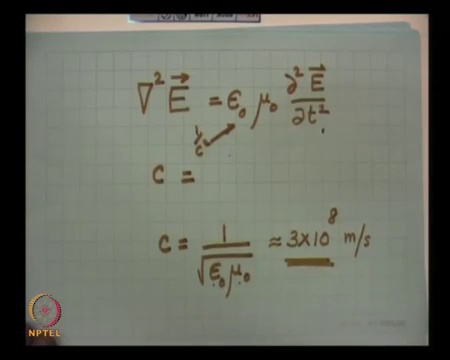 ∇² E⃗ = ε₀ μ₀ ∂²E⃗/∂t²
1/c²
c =
c = 1/√(ε₀μ₀) ≈ 3×10⁸ m/s
NPTEL